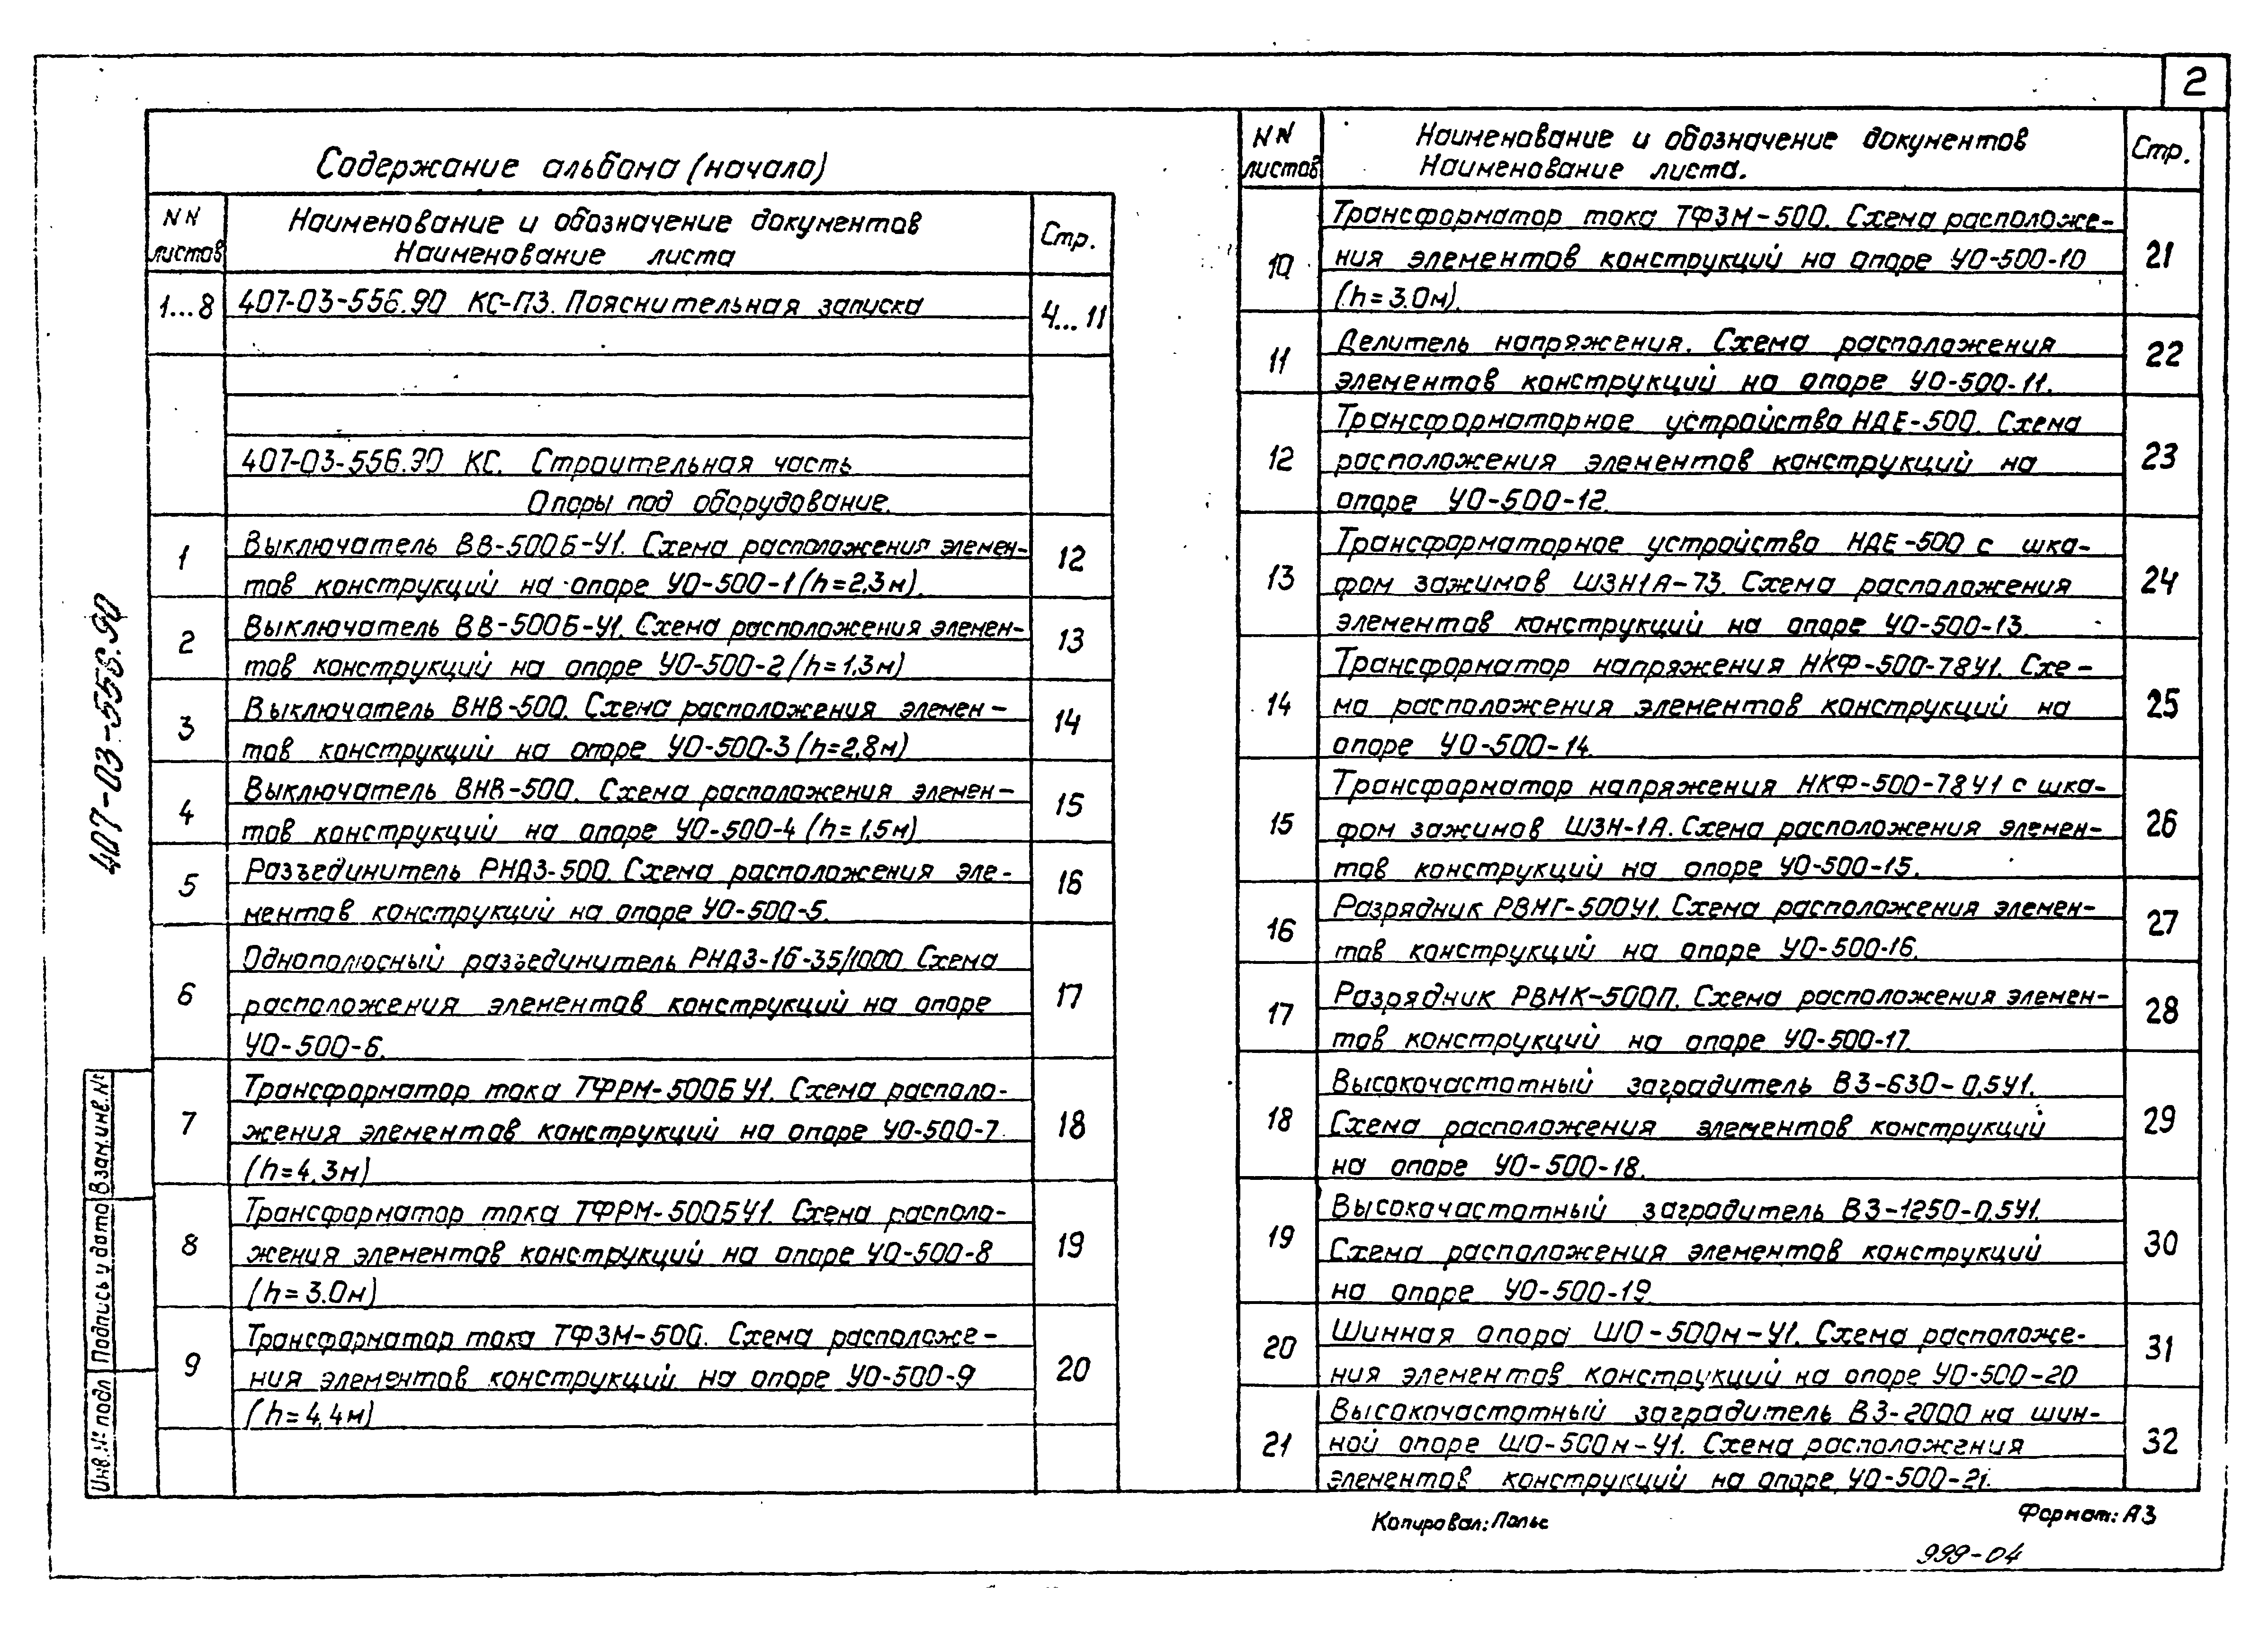 2
Содержание альбома (начало)
NN листов
Наименование и обозначение документов
Наименование листа
Стр.
1...8
407-03-556.90 КС-ПЗ. Пояснительная записка
4...11
407-03-556.90 КС. Строительная часть
Опоры под оборудование.
1
Выключатель ВВ-500Б-У1. Схема расположения элемен-
тов конструкций на опоре УО-500-1 (h=2,3м).
12
2
Выключатель ВВ-500Б-У1. Схема расположения элемен-
тов конструкций на опоре УО-500-2 (h=1,3м)
13
3
Выключатель ВНВ-500. Схема расположения элемен-
тов конструкций на опоре УО-500-3 (h=2,8м)
14
4
Выключатель ВНВ-500. Схема расположения элемен-
тов конструкций на опоре УО-500-4 (h=1,5м)
15
5
Разъединитель РНДЗ-500. Схема расположения эле-
ментов конструкций на опоре УО-500-5.
16
6
Однополюсный разъединитель РНДЗ-1б-35/1000 Схема
расположения элементов конструкций на опоре
УО-500-6.
17
7
Трансформатор тока ТФРМ-500Б У1. Схема располо-
жения элементов конструкций на опоре УО-500-7
(h=4,3м)
18
8
Трансформатор тока ТФРМ-500БУ1. Схема располо-
жения элементов конструкций на опоре УО-500-8
(h=3.0м)
19
9
Трансформатор тока ТФЗМ-500. Схема расположе-
ния элементов конструкций на опоре УО-500-9
(h=4,4м)
20
NN
листов
Наименование и обозначение документов
Наименование листа.
Стр.
10
Трансформатор тока ТФЗМ-500. Схема расположе-
ния элементов конструкций на опоре УО-500-10
(h=3.0м).
21
11
Делитель напряжения. Схема расположения
элементов конструкций на опоре УО-500-11.
22
12
Трансформаторное устройство НДЕ-500. Схема
расположения элементов конструкций на
опоре УО-500-12.
23
13
Трансформаторное устройство НДЕ-500 с шка-
фом зажимов ШЗН1А-73. Схема расположения
элементов конструкций на опоре УО-500-13.
24
14
Трансформатор напряжения НКФ-500-78У1. Схе-
ма расположения элементов конструкций на
опоре УО-500-14.
25
15
Трансформатор напряжения НКФ-500-78У1 с шка-
фом зажимов ШЗН-1А. Схема расположения элемен-
тов конструкций на опоре УО-500-15.
26
16
Разрядник РВМГ-500У1. Схема расположения элемен-
тов конструкций на опоре УО-500-16.
27
17
Разрядник РВМК-500П. Схема расположения элемен-
тов конструкций на опоре УО-500-17.
28
18
Высокочастотный заградитель ВЗ-630-0,5У1.
Схема расположения элементов конструкций
на опоре УО-500-18.
29
19
Высокочастотный заградитель ВЗ-1250-0,5У1.
Схема расположения элементов конструкций
на опоре УО-500-19
30
20
Шинная опора ШО-500м-У1. Схема расположе-
ния элементов конструкций на опоре УО-500-20
31
21
Высокочастотный заградитель ВЗ-2000 на шин-
ной опоре ШО-500м-У1. Схема расположения
элементов конструкций на опоре УО-500-21.
32
407-03-556.90
Взам.инв.№
Подпись и дата
Инв.№ подл
Копировал: Польс
Формат: А3
999-04